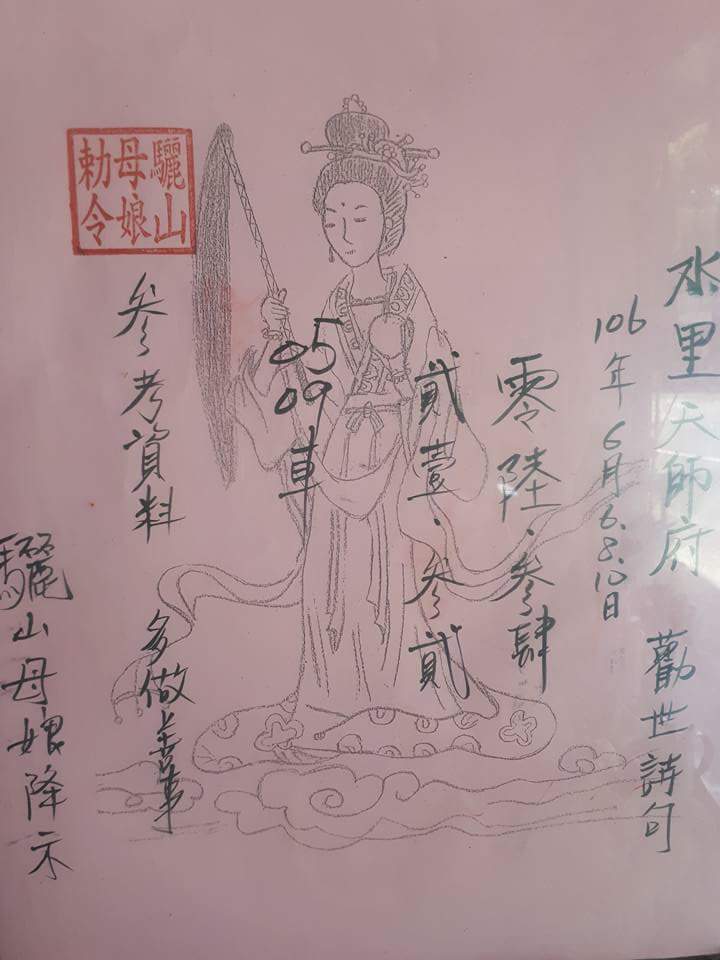 水里天師府 勸世詩句
106年6月6.8.10日
零陸.叁肆
貳壹.叁貳
05
09車
參考資料 多做善事
驪山母娘降示
驪山
母娘
勅令